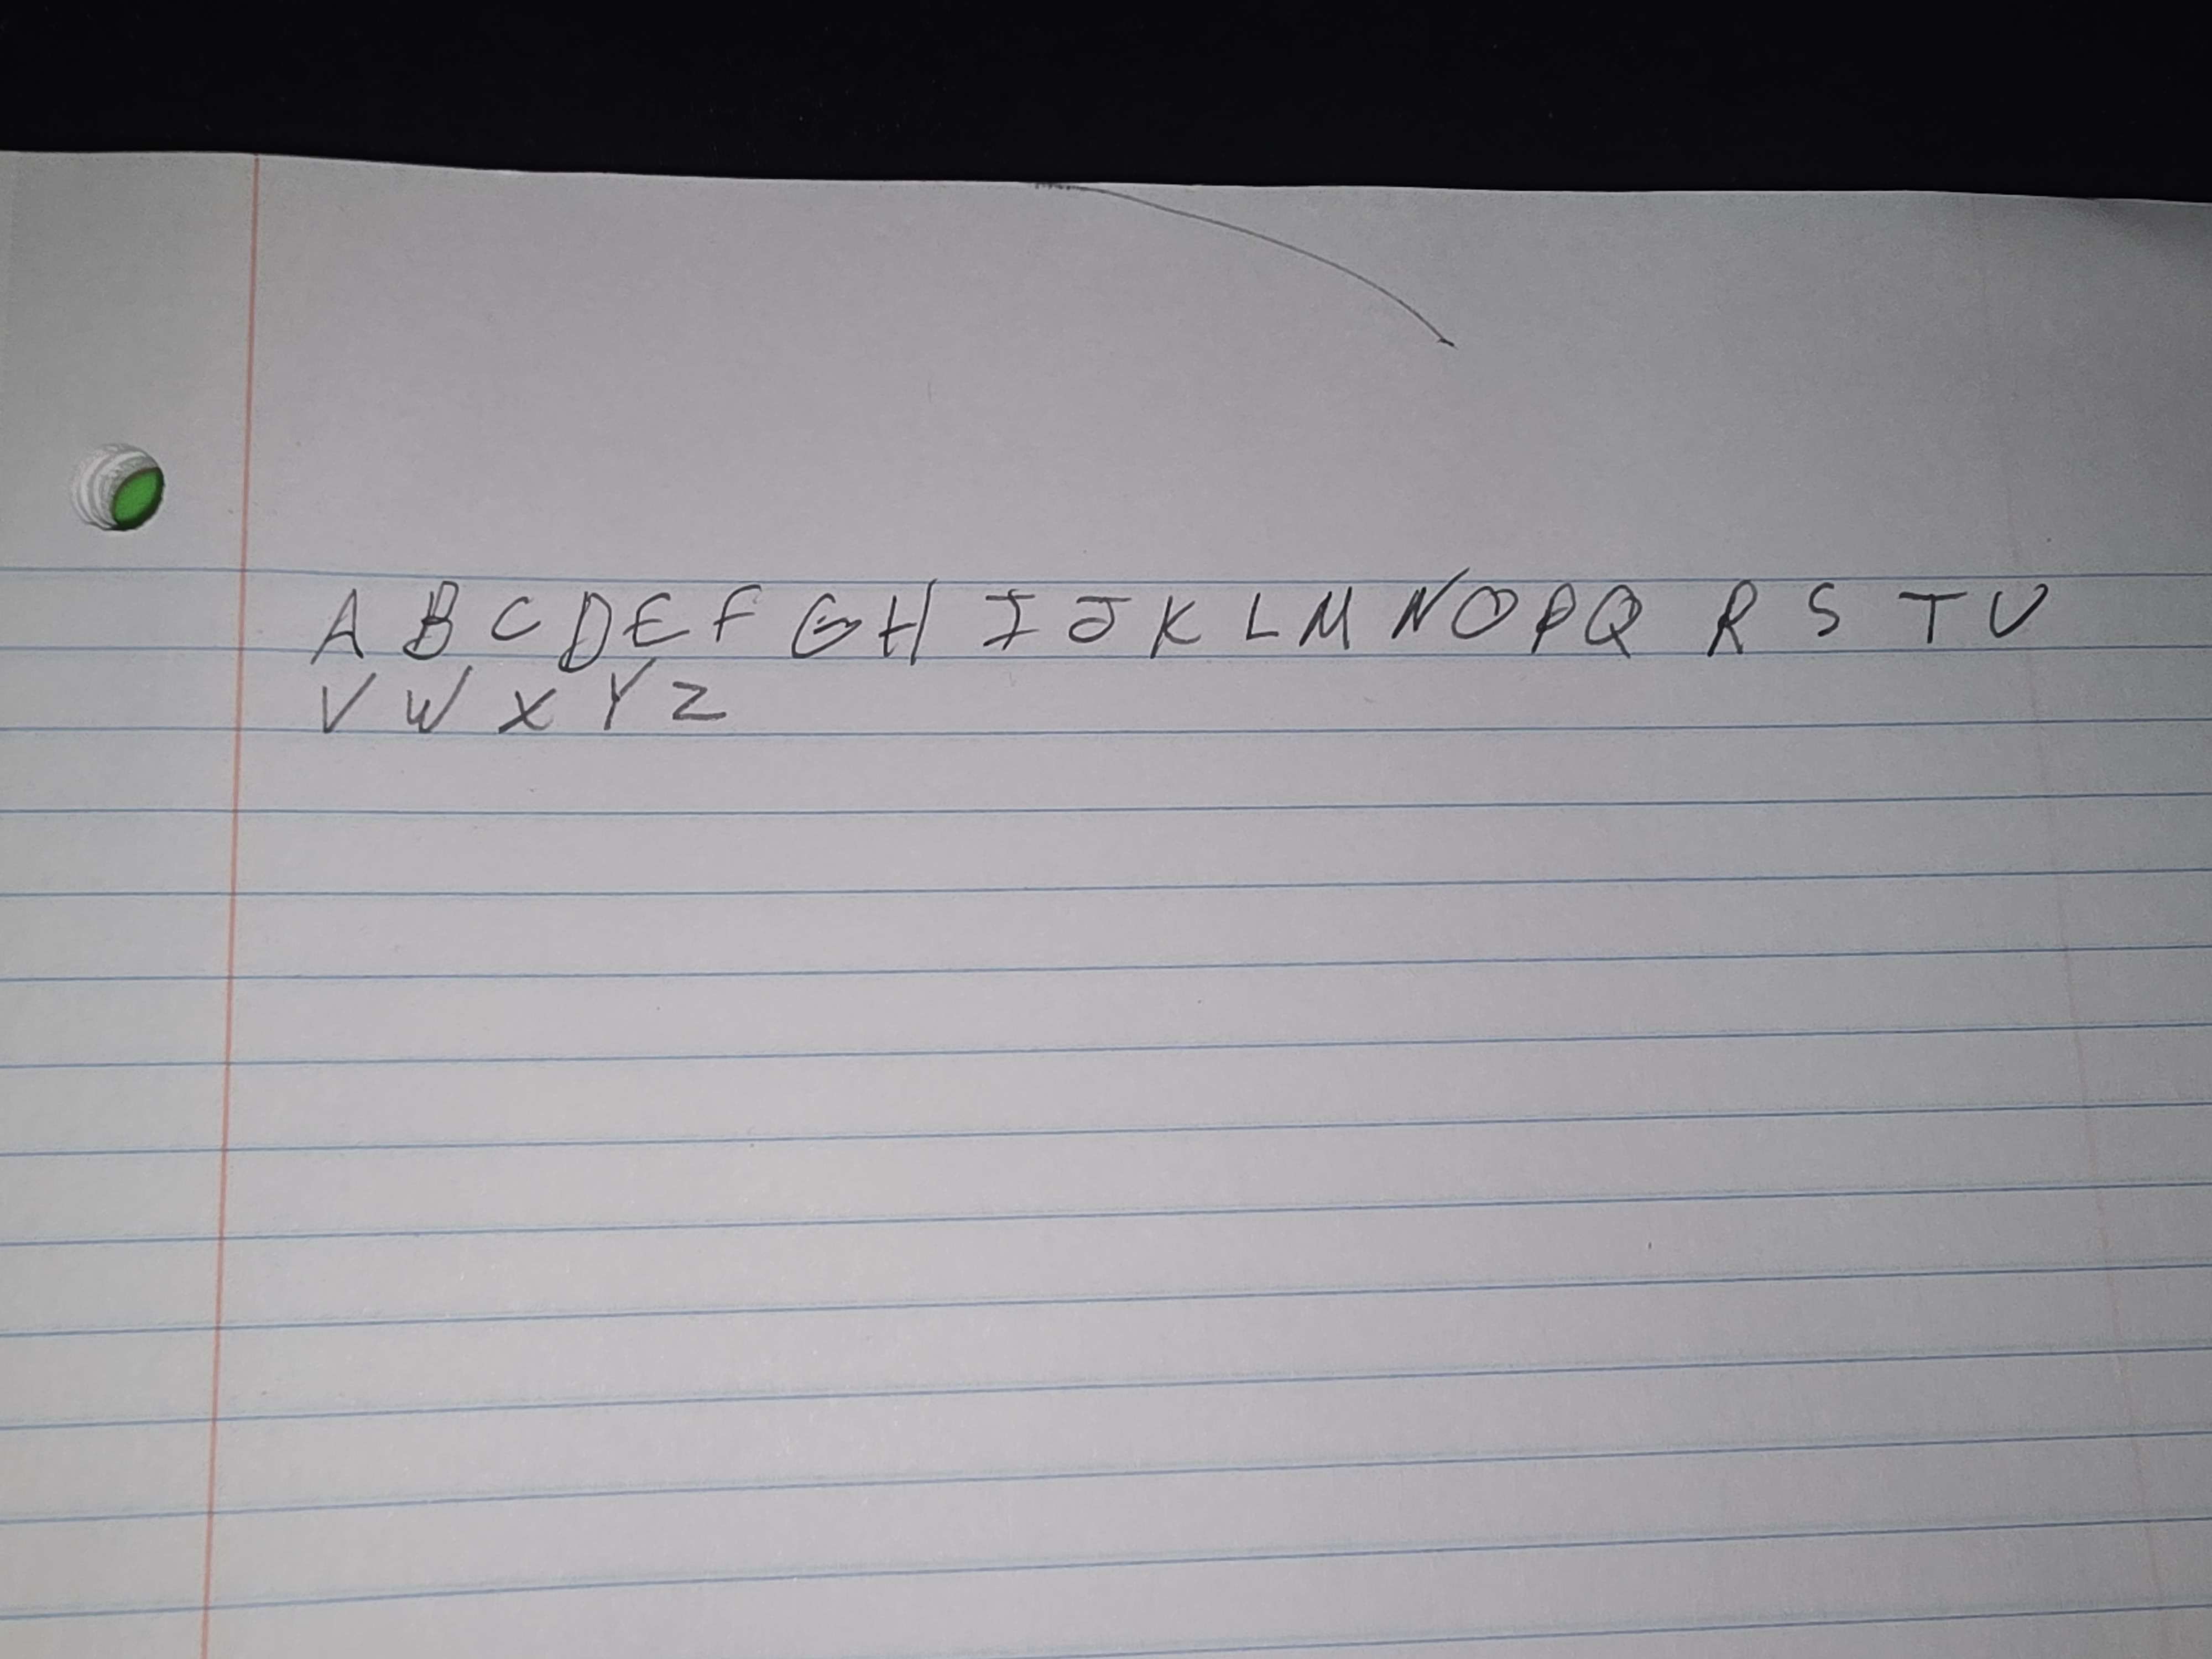 A B C D E F G H I J K L M N O P Q R S T U
V W X Y Z